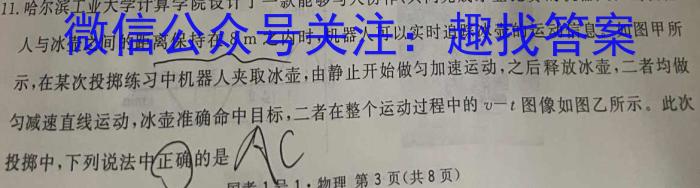 11.哈尔滨工业大学计算学院设计了一款能够与人协作、
微信公众号关注：趣找答案
人与冰壶之间的距离保持在8 m之内时,机器人可以实时追踪冰壶的运动信息。如图甲所
示,在某次投掷练习中机器人夹取冰壶,由静止开始做匀加速运动,之后释放冰壶,二者均做
匀减速直线运动,冰壶准确命中目标,二者在整个运动过程中的v—t图像如图乙所示。此次
投掷中,下列说法中正确的是
AC
1号1·物理 第3页(共8页)